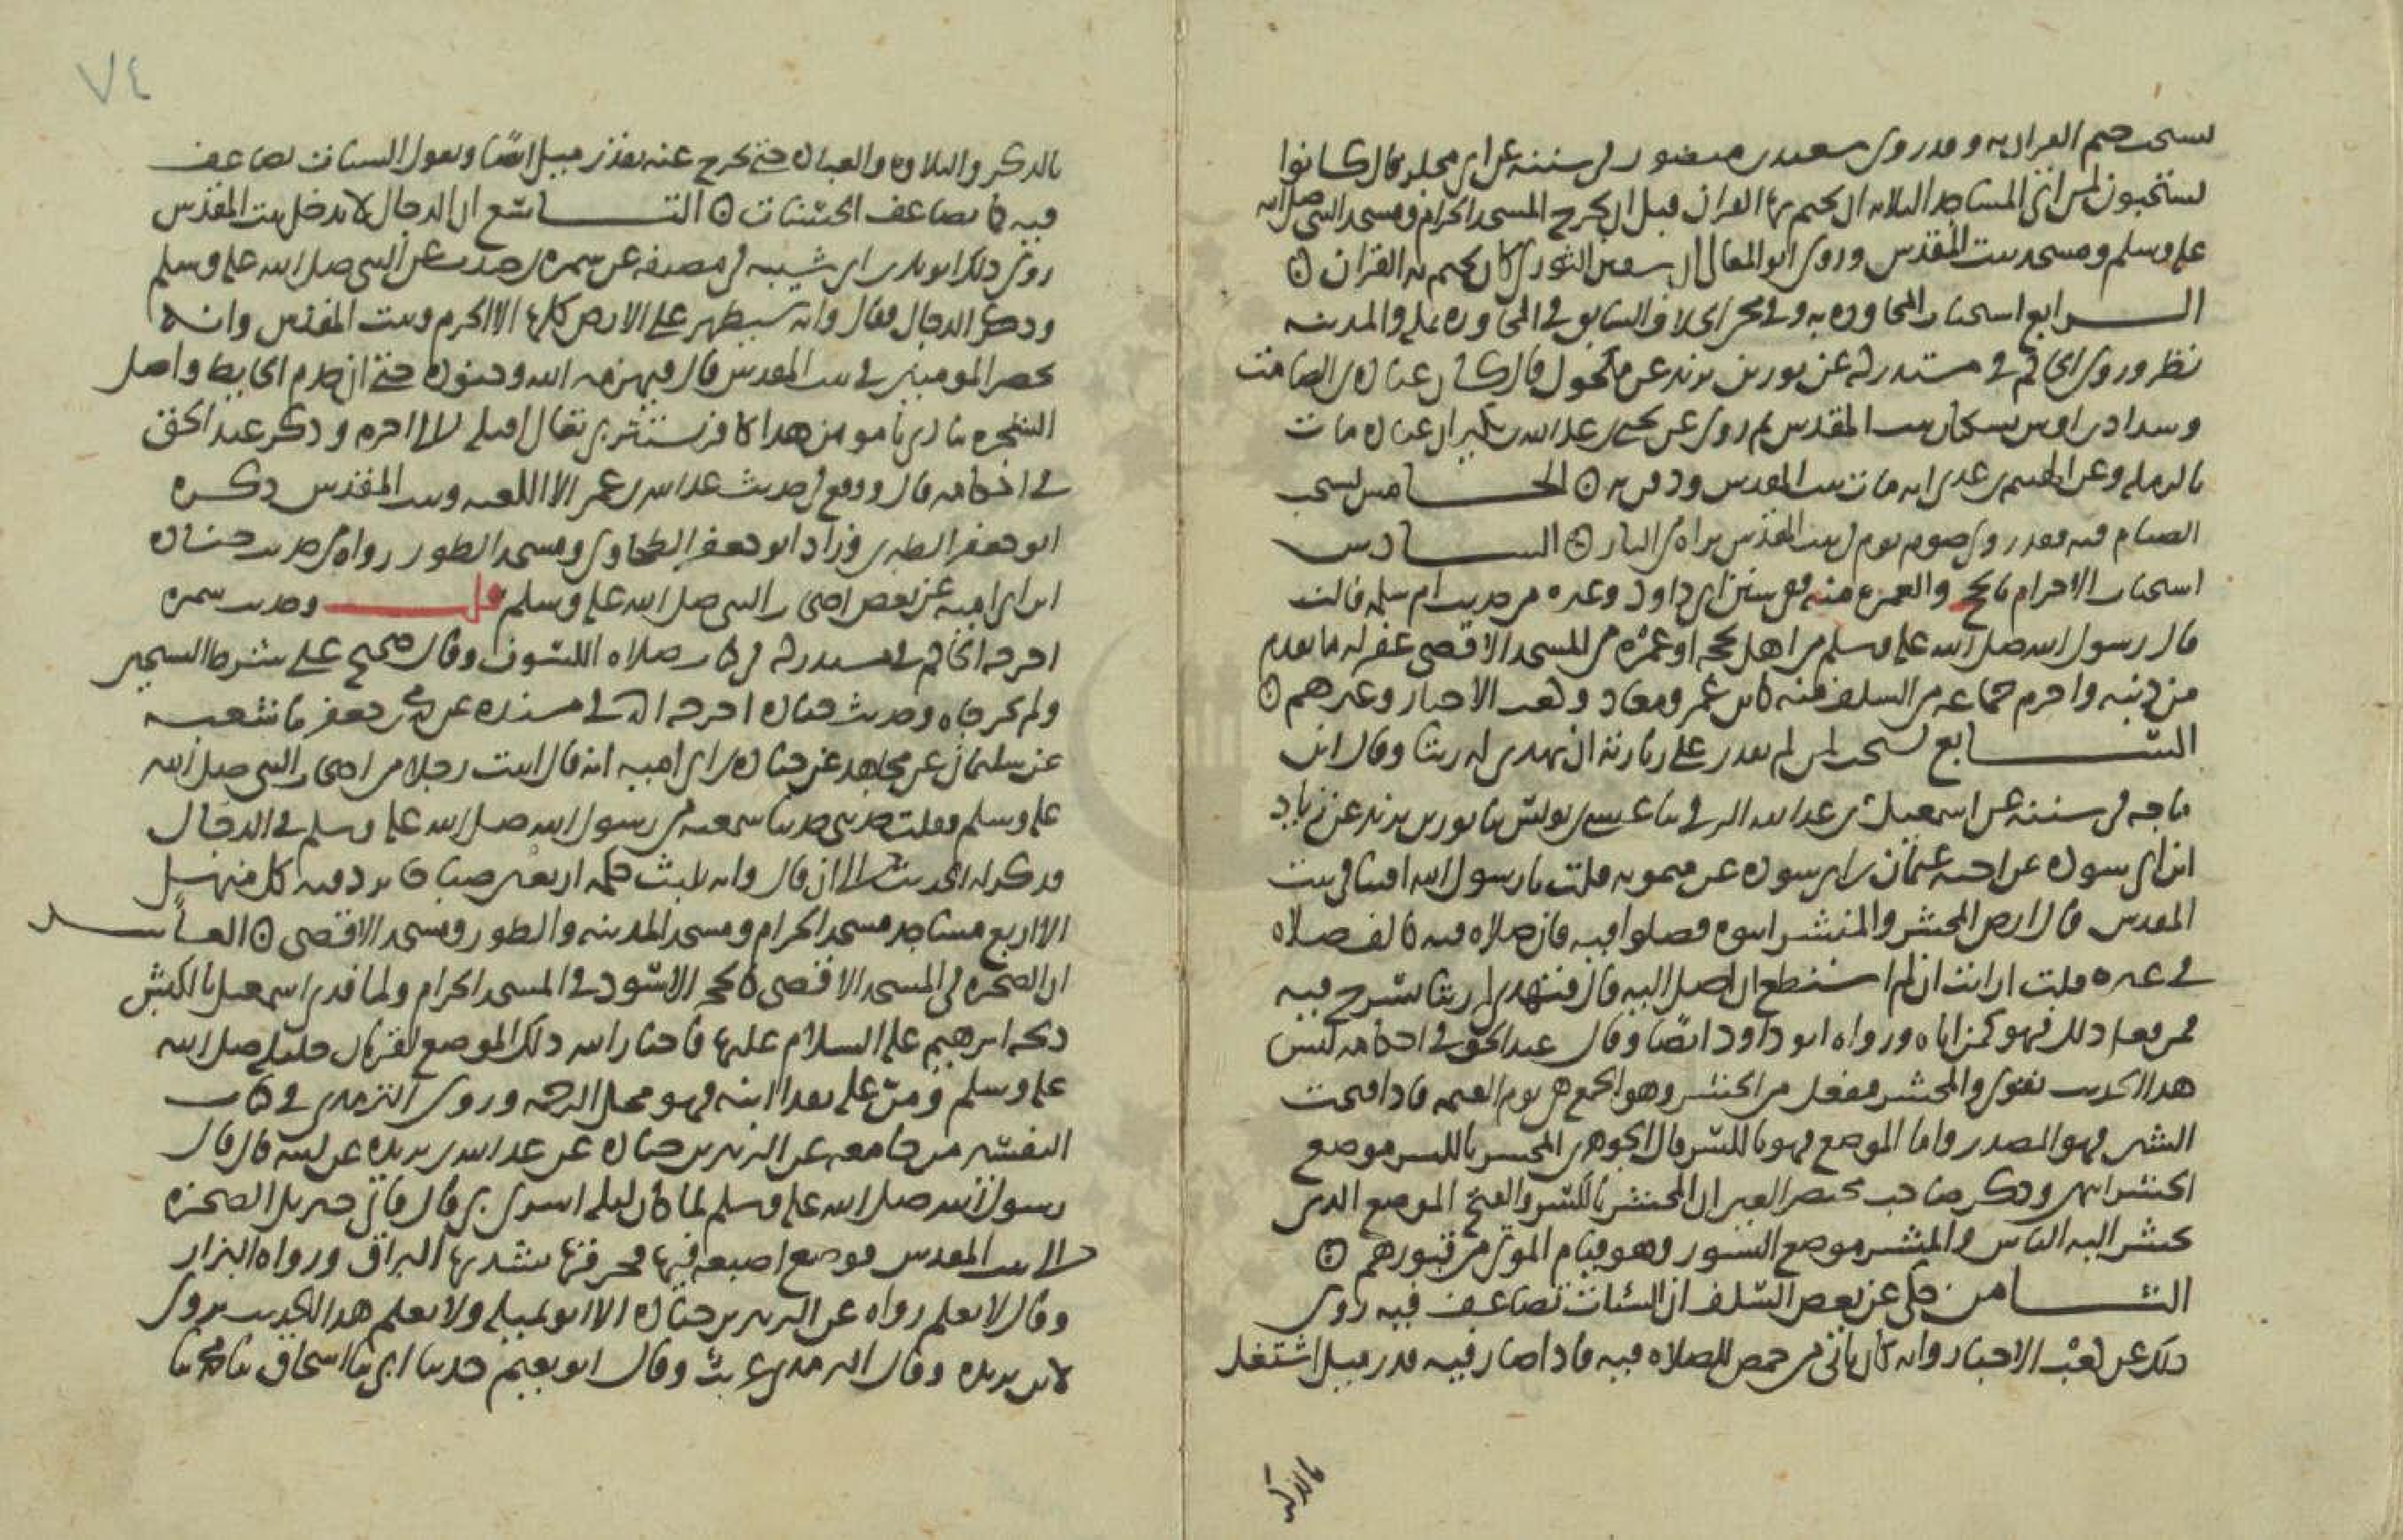 يستحب ختم القران به وقد روى سعيد بن منصور في سننه عن ابي مجلز قال كانوا
يستحبون لمن اتى المساجد الثلاثه ان يختم بها القران قبل ان يخرج المسجد الحرام ومسجد النبي صلى الله
عليه وسلم ومسجد بيت المقدس وروى ابو المعالي ان سفين الثوري كان يختم به القران
الرابع استحباب المجاوره به وفي مجرى الخلاف السابق في المجاوره بمكه والمدينه
نظر وروى الحاكم في مستدركه عن ثور بن يزيد عن مكحول قال كان عباده بن الصامت
وشداد بن اوس يسكنان بيت المقدس ثم روى عن يحيى بن عبد الله بن بكير ان عباده مات
بالرمله وعن الهيثم بن عدي انه مات ببيت المقدس ودفن به الخامس يستحب
الصيام فيه فقد روى صوم يوم في بيت المقدس براه من النار السادس
استحباب الاحرام بالحج والعمره منه ففي سنن ابي داود وغيره من حديث ام سلمه قالت
قال رسول الله صلى الله عليه وسلم من اهل بحجه او عمره من المسجد الاقصى غفر له ما تقدم
من ذنبه واحرم جماعه من السلف منه كابن عمر ومعاذ وكعب الاحبار وغيرهم
السابع يستحب لمن لم يقدر على زيارته ان يهدي له زيتا وقال ابن
ماجه في سننه عن اسمعيل بن عبد الله الرقي ثنا عيسى بن يونس ثنا ثور بن يزيد عن زياد
ابن ابي سوده عن اخيه عثمان بن ابي سوده عن ميمونه قلت يا رسول الله افتنا في بيت
المقدس قال ارض المحشر والمنشر ايتوه فصلوا فيه فان صلاه فيه كالف صلاه
في غيره قلت ارايت ان لم استطع ان اتحمل اليه قال فتهدي له زيتا يسرج فيه
فمن فعل ذلك فهو كمن اتاه ورواه ابو داود ايضا وقال عبد الحق في احكامه ليس
هذا الحديث بقوي والمحشر مفعل من الحشر وهو الجمع في يوم القيمه فاذا فتحت
الشين فهو المصدر واما الموضع فهو بالكسر قال الجوهري المحشر بالكسر موضع
الحشر انتهى وذكر صاحب مختصر العين ان المحشر بالكسر والفتح الموضع الذي
يحشر اليه الناس والمنشر موضع النشور وهو قيام الموتى من قبورهم
الثامن حكى عن بعض السلف ان السيات تضاعف فيه روى
ذلك عن كعب الاحبار وانه كان ياتي من حمص للصلاه فيه فاذا صار فيه قدر ميل اشتغل
بالذكر
بالذكر والتلاوه والعباده حتى يخرج عنه بقدر ميل ايضا ويقول السيات تضاعف
فيه كما تضاعف الحسنات التاسع ان الدجال لا يدخل بيت المقدس
روى ذلك ابو بكر بن ابي شيبه في مصنفه عن سمره بن جندب عن النبي صلى الله عليه وسلم
وذكر الدجال فقال وانه سيظهر على الارض كلها الا الحرم وبيت المقدس وانه
يحصر المومنين في بيت المقدس قال فيهزمه الله وجنوده حتى ان جذم الحايط واصل
الشجره ينادي يا مومن هذا كافر يستتر بي تعال اقتله الا الحرم وذكر عبد الحق
في احكامه قال ووقع في حديث عبد الله بن عمر الا الكعبه وبيت المقدس ذكره
ابو جعفر الطبري وزاد ابو جعفر الطحاوي ومسجد الطور رواه من حديث جناده
ابن ابي اميه عن بعض اصحاب النبي صلى الله عليه وسلم قلت وحديث سمره
اخرجه الحاكم في مستدركه في كتاب صلاه الكسوف وقال صحيح على شرط الشيخين
ولم يخرجاه وحديث جناده اخرجه في مسنده عن محمد بن جعفر ثنا شعبه
عن سليمان عن مجاهد عن جناده بن ابي اميه انه قال اتيت رجلا من اصحاب النبي صلى الله
عليه وسلم فقلت حدثني حديثا سمعته من رسول الله صلى الله عليه وسلم في الدجال
فذكر الحديث الى ان قال وانه يلبث فيكم اربعين صباحا يرد فيه كل منهل
الا اربع مساجد مسجد الحرام ومسجد المدينه والطور ومسجد الاقصى العاشر
ان الصخره في المسجد الاقصى كالحجر الاسود في المسجد الحرام ولما فدى اسمعيل بالكبش
ذبحه ابرهيم عليه السلام عليها فاختار الله ذلك الموضع لقربان خليله صلى الله
عليه وسلم ومن عليه بفدا ابنه فهو محل الرحمه وروى الترمذي في كتاب
التفسير من جامعه عن الزبير بن جناده عن عبد الله بن بريده عن ابيه قال قال
رسول الله صلى الله عليه وسلم لما كان ليله اسري بي قال فاتى جبريل الصخره
التي ببيت المقدس فوضع اصبعه فيها فخرقها فشد بها البراق ورواه البزار
وقال لا نعلم رواه عن الزبير بن جناده الا ابو تميله ولا نعلم هذا الحديث يروى
لابن بريده وقال الترمذي غريب وقال ابو نعيم حدثنا ابي ثنا اسحاق ثنا محمد ثنا
٧٤